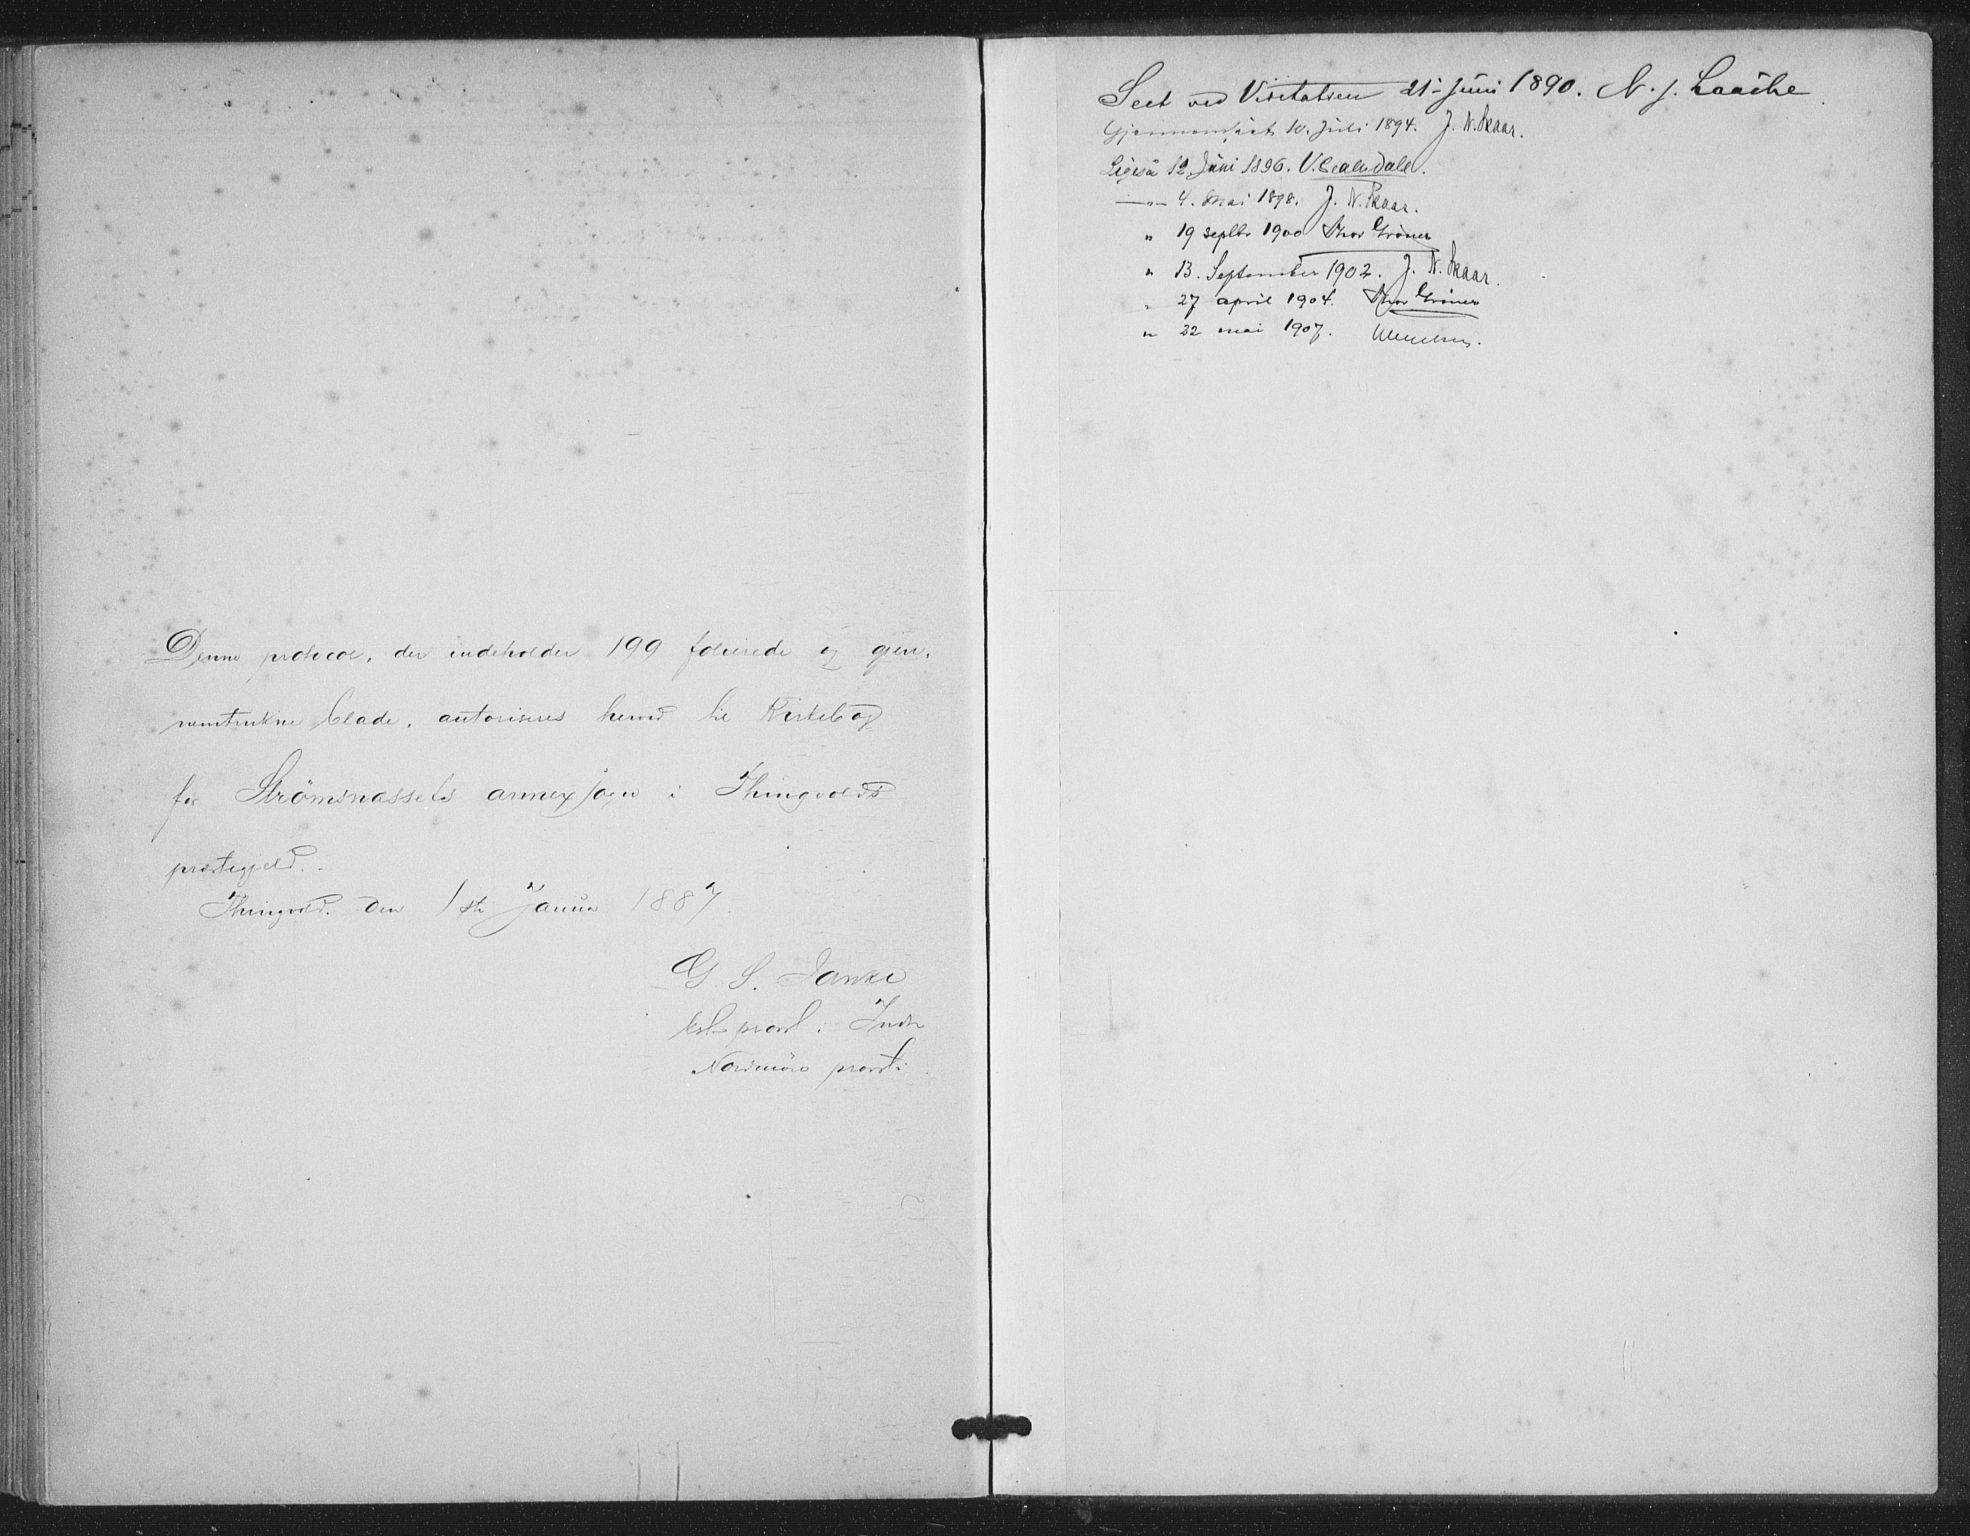 Denne protocol, der indeholder 199 folierede og gjen-
nemtrukne blade, autoriseres herved til Kirkebog
for Strömsnæssets annexsogn i Thingvolds
præstegjeld.
Thingvold den 1ste Januar 1887
G. S. Janke
kst. provst i Indre
Nordmöre provsti
Seet ved Visitatsen 21. Juni 1890. N. J. Laache
Gjennemseet 10. Juli 1894. J. N. Skaar.
Ligesaa 12 Juni 1896.
—„— 4. Mai 1898. J. N. Skaar.
„ 19 septbr 1900 Thor Gröner
„ 13. September 1902. J. N. Skaar.
„ 27 april 1904. Thor Gröner
„ 22 mai 1907.